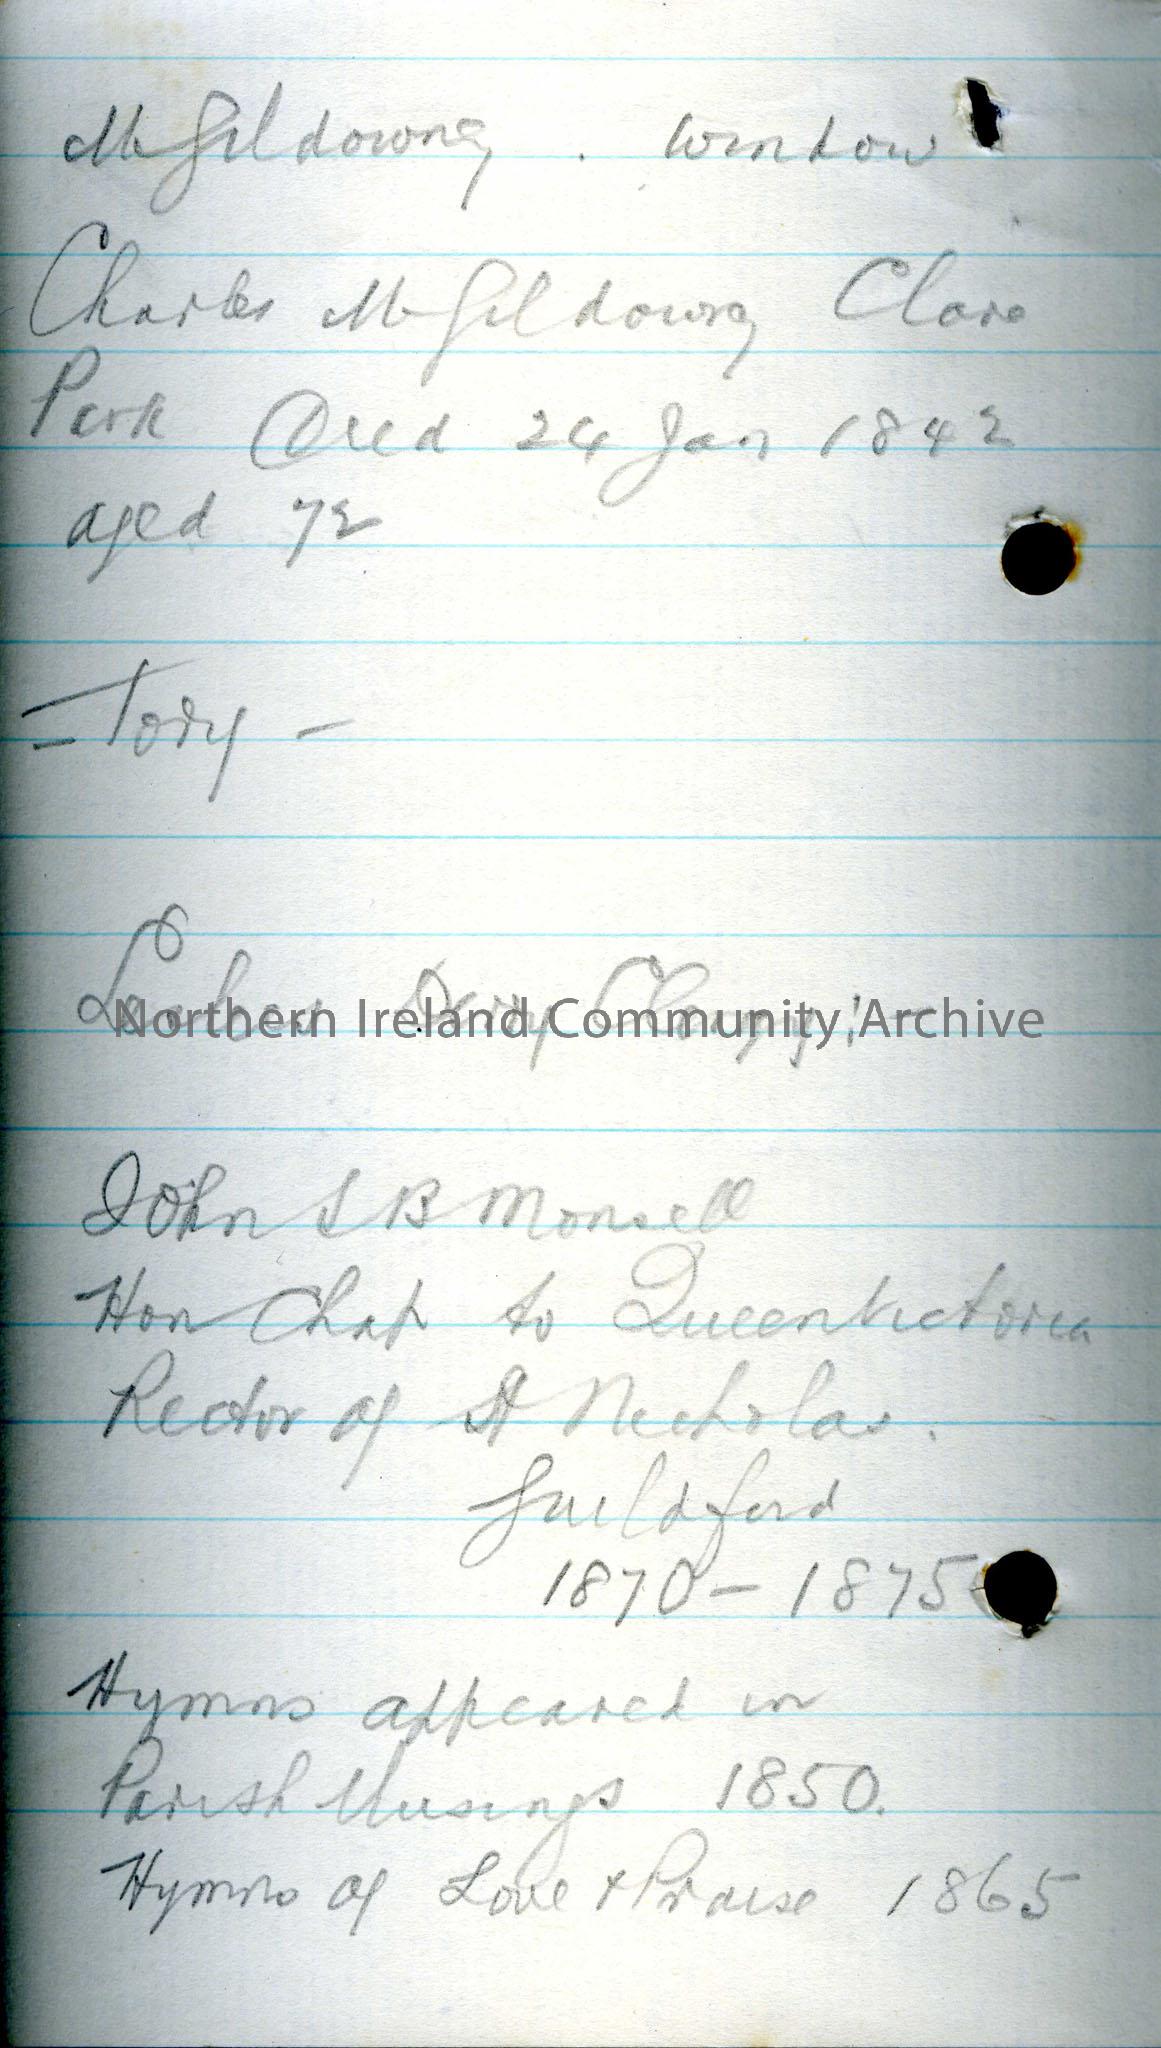 McGildowney . Window
Charles McGildowney Clare
Park Died 24 Jan 1842
aged 72
- Tory -
Derry Clergy :-
Northern Ireland Community Archive
John S B Monsell
Hon Chap to Queen Victoria
Rector of St Nicholas.
Guildford
1870 - 1875
Hymns appeared in
Parish Musings 1850.
Hymns of Love & Praise 1865